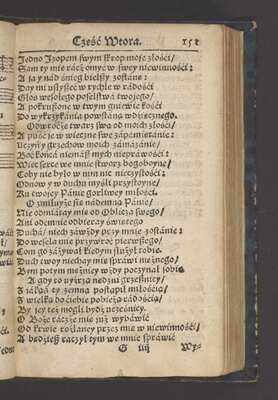 Część Wtora. 151
Jedno Izopem swym skrop moje złości/
Sam ty mie racz omyć w swey niewinności:
A ja y nád śnieg bielszy zostáne:
Day mi usłyszeć w rychle w rádości
Głos wesołego poselstwá twojego/
A pokruszone w twym gniewie kości
Do wykrzykánia powstáną wdzięcznego.
Odwroć że twarz swą od moich złości/
A puść je w wieczne swe zápámiętánie:
Uczyń y grzechom moich zámázánie/
Boć końcá niemász mych niepráwości:
Wiec serce we mnie stworz bogoboyne/
Coby nie było w nim nic nieczystości:
Odnow y w duchu myśli przystoyne/
Ku twojey Pánie gorliwey miłości.
O zmiłuyże sie nádemną Pánie/
Nie odmiatay mie od Oblicza swego/
Ani odemnie odbieray świętego
Duchá/ niech záwżdy przy mnie zostánie:
Do weselá mie przywroć pierwszego/
Com go záżywał kiedym służył tobie.
Duch twoy niechay mie spráwi mężnego/
Bym potym mężniey wżdy poczynał sobie.
A gdy to uyźrzą nędzni grzesznicy/
Z jáką ty zemną postąpił miłością/
Z wielką do ciebie pobieżą rádością/
By jey też mogli bydź uczesnicy.
O Boże ráczże mie już wybáwić
Od krwie rozlaney przez mie w niewinności/
A hrodzieß raczył tym we mnie spráwić
G iiij Wy-